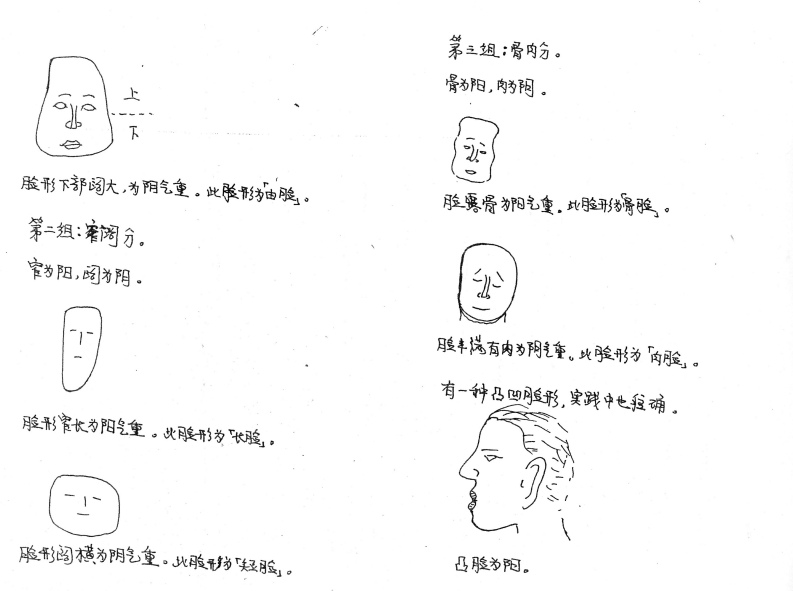 上
下
脸形下部阔大,为阴气重。此脸形为「由脸」。
第二组:窄阔分。
窄为阳,阔为阴。
脸形窄长为阳气重。此脸形为「长脸」。
脸形阔横为阴气重。此脸形为「短脸」。
第三组:骨肉分。
骨为阳,肉为阴。
脸露骨为阳气重。此脸形为「骨脸」。
脸丰滿有肉为阴气重。此脸形为「肉脸」。
有一种凸凹脸形,实践中也较准。
凸脸为阳。